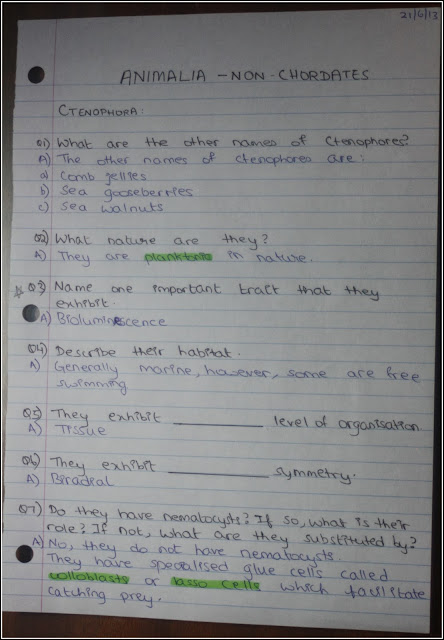 21/6/13
ANIMALIA - NON-CHORDATES
CTENOPHORA:
Q1) What are the other names of Ctenophores?
A) The other names of ctenophores are:
a) Comb jellies
b) Sea gooseberries
c) Sea walnuts
Q2) What nature are they?
A) They are planktonic in nature.
* Q3) Name one important trait that they
exhibit.
A) Bioluminescence
Q4) Describe their habitat.
A) Generally marine, however, some are free
swimming
Q5) They exhibit __________ level of organisation.
A) Tissue
Q6) They exhibit __________ symmetry.
A) Biradial
Q7) Do they have nematocysts? If so, what is their
role? If not, what are they substituted by?
A) No, they do not have nematocysts.
They have specialised glue cells called
colloblasts or lasso cells which facilitate
catching prey.